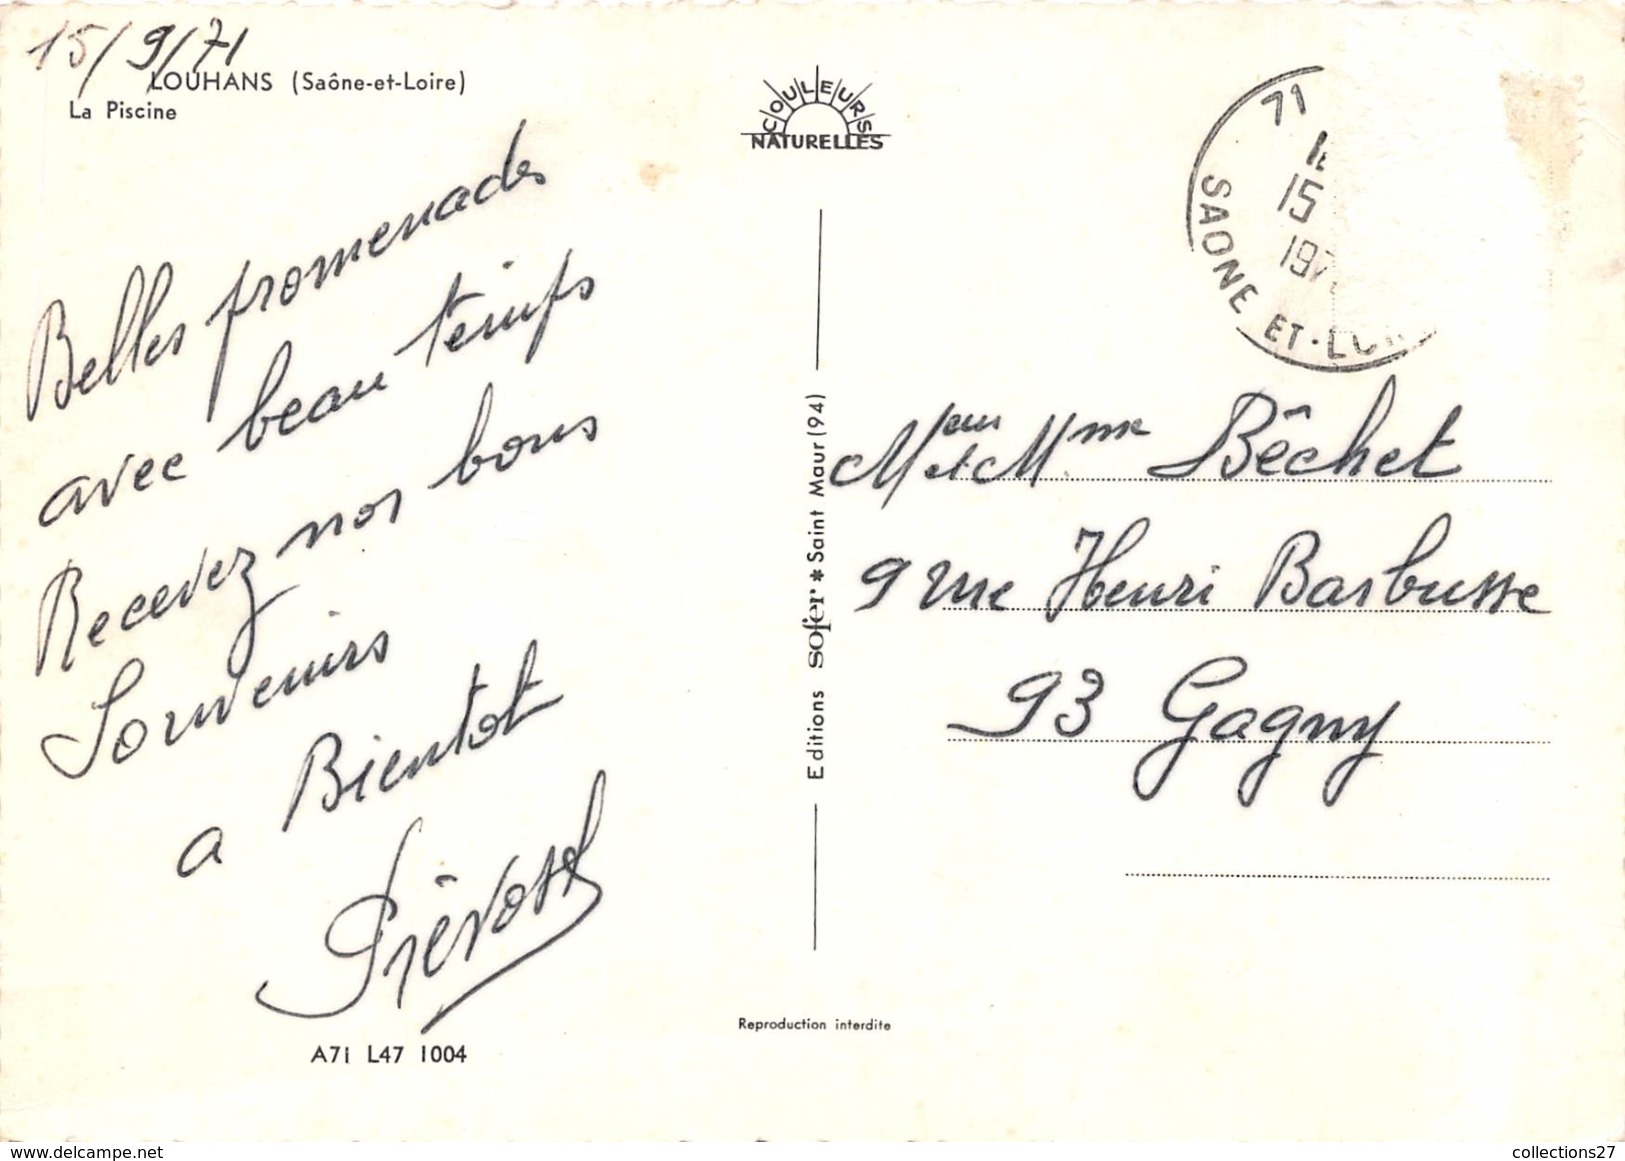 15/9/71
LOUHANS (Saône-et-Loire)
La Piscine
Belles promenades
avec beau temps
Recevez nos bons
Souvenirs
a Bientot
Prévost
A71 L47 1004
COULEURS
NATURELLES
Editions sofer * Saint Maur (94)
Reproduction interdite
71
15
197
SAONE ET-LOI
Meur et Mme Bêchet
9 rue Henri Barbusse
93 Gagny
delcampe.net
collections27